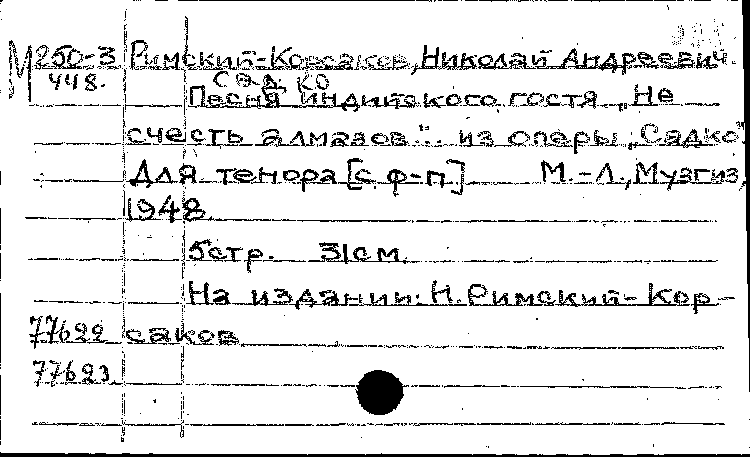 М250-3 Римский-Корсаков, Николай Андреевич.
448. Садко
Песня индийского гостя „Не
счесть алмазов“.. из оперы „Садко“
Для тенора [с ф-п]. М.-Л., Музгиз,
1948.
5стр. 31см.
На издании: Н. Римский-Кор-
77622 саков
77623.